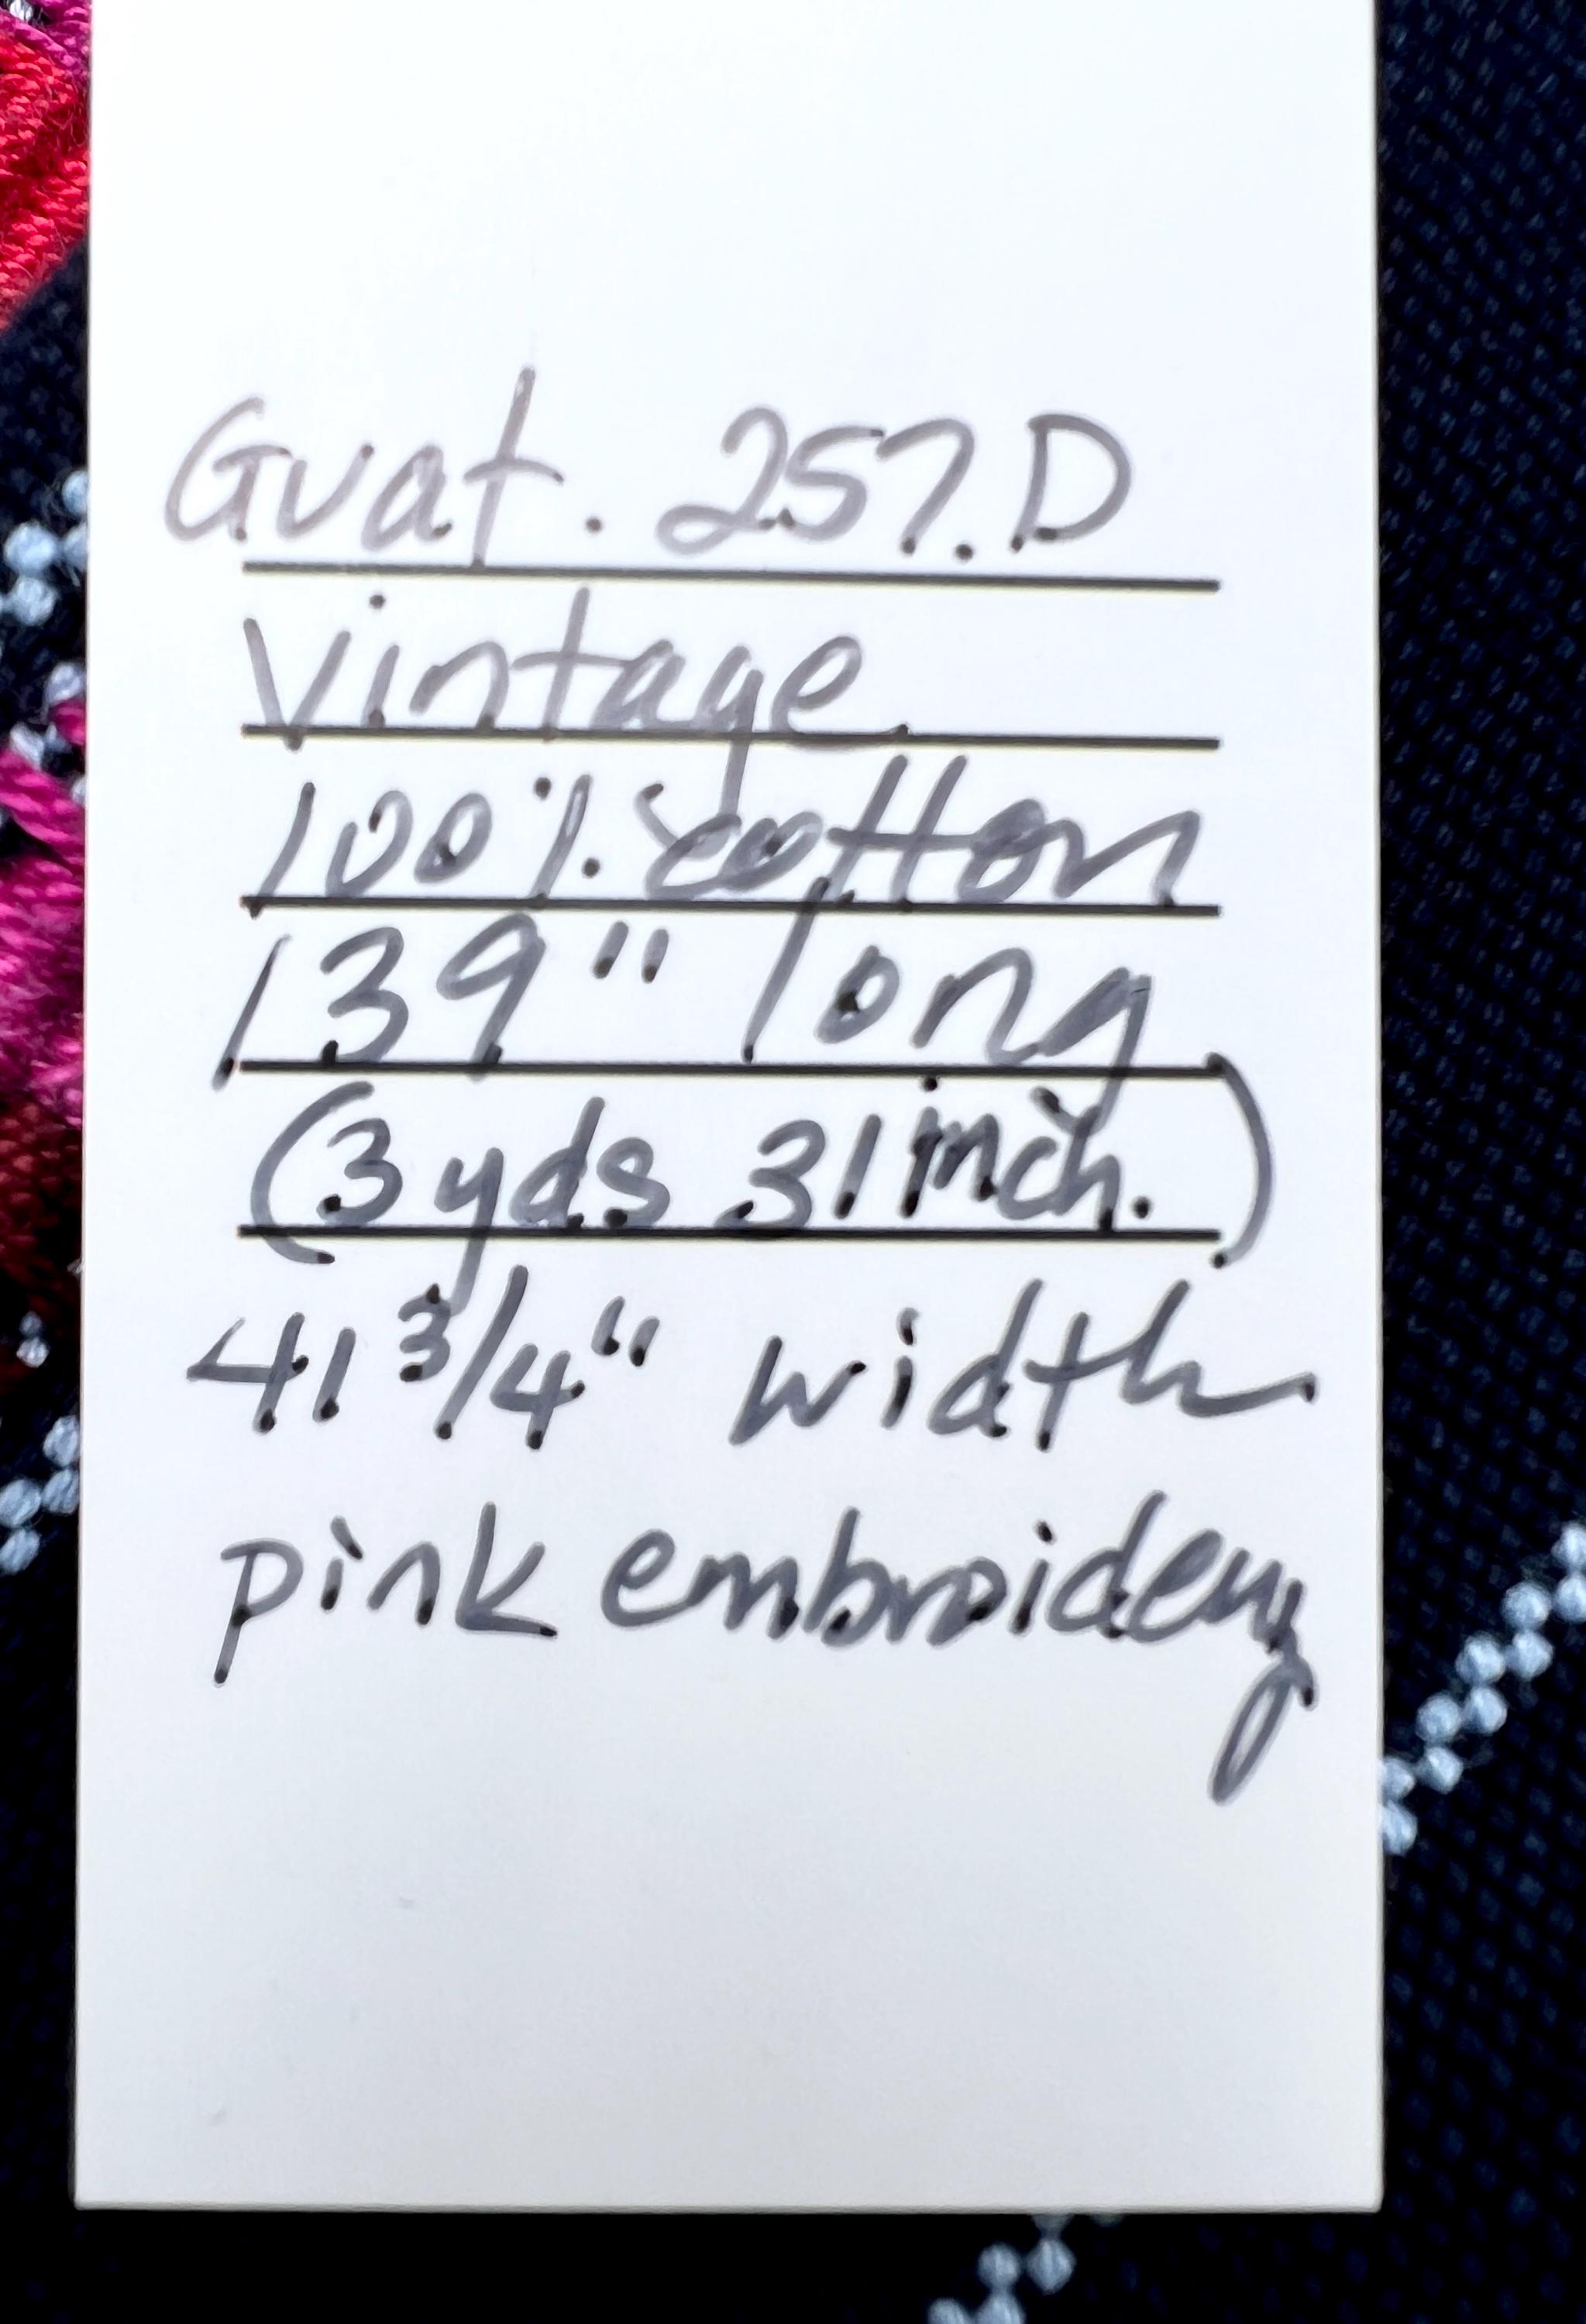 Guat. 257.D
Vintage
100% cotton
139" long
(3 yds 31 inch.)
41 3/4" width
pink embroidery